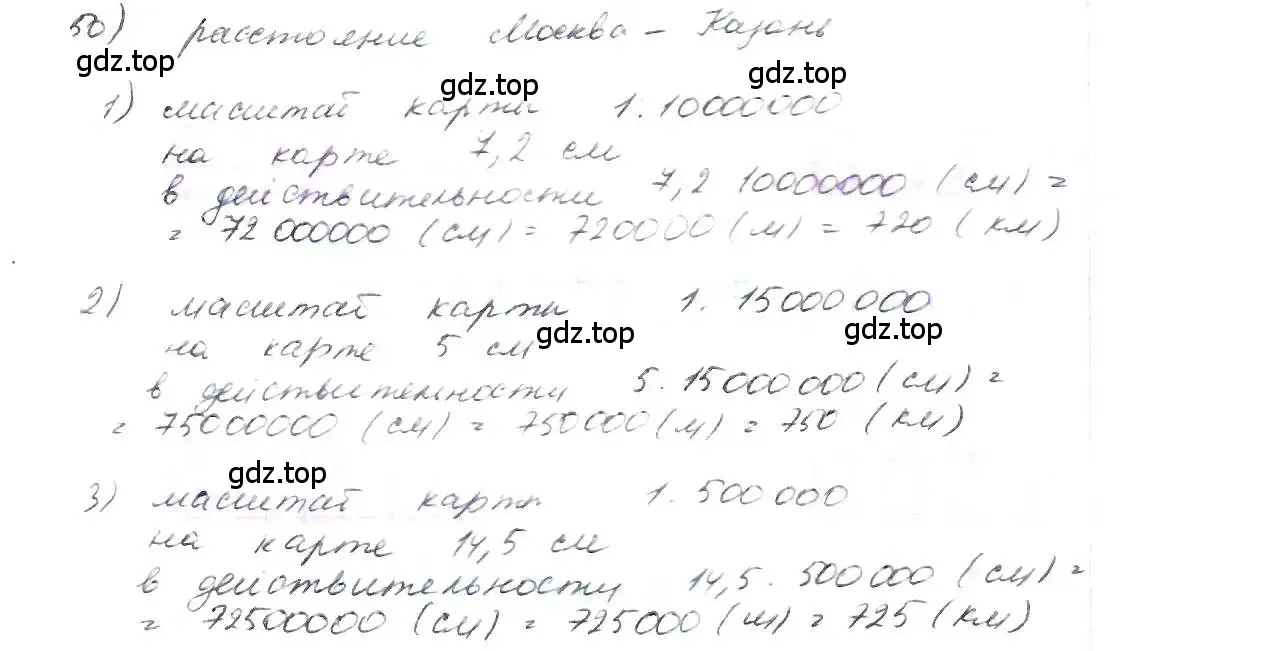 50) расстояние Москва - Казань
gdz.top
gdz.top
gdz.top
1) масштаб карты 1:10000000
на карте 7,2 см
в действительности 7,2 10000000 (см) =
= 72 000000 (см) = 720000 (м) = 720 (км)
2) масштаб карты 1:15000 000
gdz.top
gdz.top
на карте 5 см
в действительности 5·15000 000 (см) =
= 75000000 (см) = 750000 (м) = 750 (км)
gdz.top
3) масштаб карты 1:500 000
на карте 14,5 см
в действительности 14,5·500 000 (см) =
= 72500000 (см) = 725000 (м) = 725 (км)